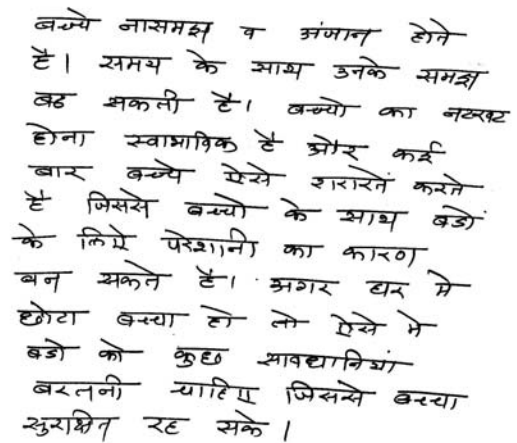 बच्चे नासमझ व अंजान होते
है। समय के साथ उनके समझ
बढ सकती है। बच्चो का नटखट
होना स्वाभाविक है और कई
बार बच्चे ऐसे शरारतें करते
है जिससे बच्चो के साथ बडों
के लिये परेशानी का कारण
बन सकते है। अगर घर मे
छोटा बच्चा हो तो ऐसे मे
बडो को कुछ सावधानियां
बरतनी चाहिए जिससे बच्चा
सुरक्षित रह सके।